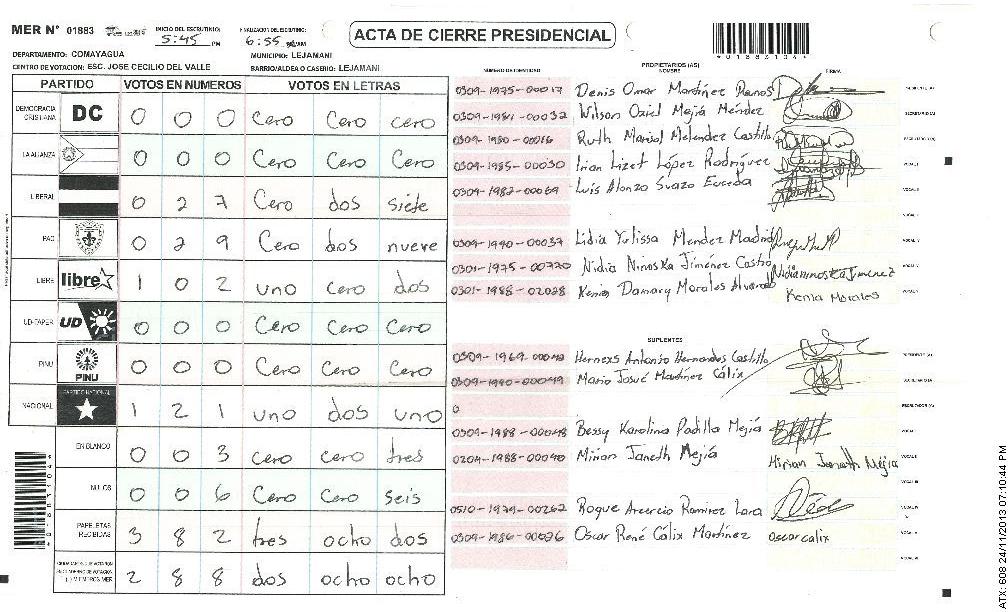 MER Nº 01883
INICIO DEL ESCRUTINIO: 5:45 PM
FINALIZACION DEL ESCRUTINIO: 6:55 AM
ACTA DE CIERRE PRESIDENCIAL
DEPARTAMENTO: COMAYAGUA
MUNICIPIO: LEJAMANI
CENTRO DE VOTACION: ESC. JOSE CECILIO DEL VALLE
BARRIO/ALDEA O CASERIO: LEJAMANI
PARTIDO VOTOS EN NUMEROS VOTOS EN LETRAS
DEMOCRACIA CRISTIANA DC 0 0 0 Cero Cero cero
LA ALIANZA 0 0 0 Cero Cero Cero
LIBERAL 0 2 7 Cero dos siete
PAC 0 2 9 Cero dos nueve
LIBRE libre 1 0 2 uno cero dos
UD-FAPER UD 0 0 0 Cero Cero Cero
PINU PINU 0 0 0 Cero Cero Cero
NACIONAL PARTIDO NACIONAL 1 2 1 uno dos uno
EN BLANCO 0 0 3 cero cero tres
NULOS 0 0 6 Cero Cero seis
PAPELETAS RECIBIDAS 3 8 2 tres ocho dos
2 8 8 dos ocho ocho
NUMERO DE IDENTIDAD PROPIETARIOS (AS) NOMBRE FIRMA
0309-1975-00017 Denis Omar Martínez Ramos PRESIDENTE (A)
0309-1981-00032 Wilson Oziel Mejía Méndez SECRETARIO (A)
0309-1980-00016 Ruth Marisol Melendez Castillo
0309-1985-00030 Irian Lizet López Rodríguez VOCAL I
0309-1982-00069 Luis Alonzo Suazo Euceda VOCAL II
VOCAL III
0309-1990-00037 Lidia Yulissa Mendez Madrid VOCAL IV
0301-1975-00720 Nidia Ninoska Jiménez Castro Nidia ninoska Jimenez VOCAL V
0301-1988-02028 Kenia Damary Morales Alvarado Kenia Morales
SUPLENTES
Hernexs Antonio Hernandes Castillo PRESIDENTE (A)
0309-1990-00049 Mario Josué Martínez Cálix SECRETARIO (A)
0 ESCRUTADOR (A)
0309-1988-00048 Bessy Karolina Padilla Mejía VOCAL I
0204-1988-00040 Mirian Janeth Mejía Mirian Janeth Mejia VOCAL II
VOCAL III
0510-1979-00262 Roque Arcercio Ramirez Lara VOCAL IV
0309-1986-00026 Oscar René Cálix Martínez oscar calix VOCAL V
ATX: 608 24/11/2013 07:10:44 PM